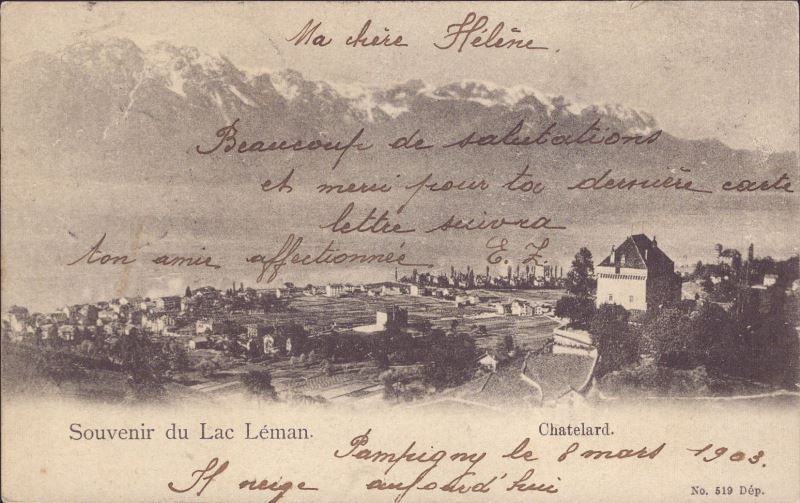 Ma chère Hélène.
Beaucoup de salutations
et merci pour ta dernière carte
lettre suivra
ton amie affectionnée E. Z.
Souvenir du Lac Léman.
Chatelard.
Pampigny le 8 mars 1903.
Il neige aujourd'hui
No. 519 Dép.